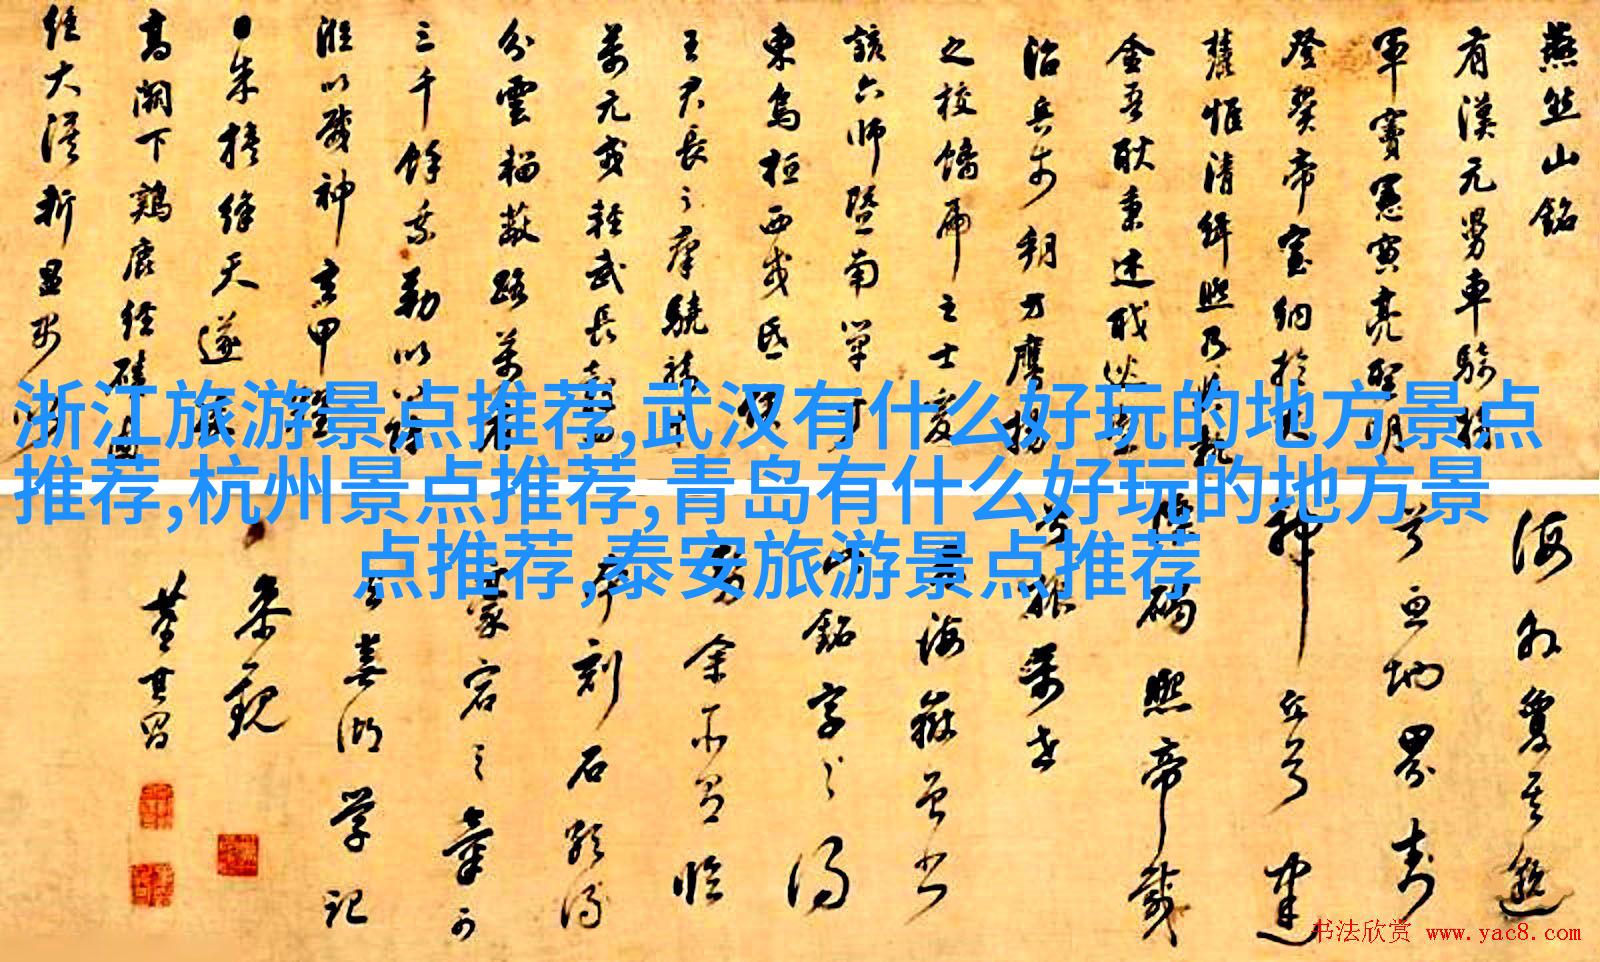 燕然山銘
有漢元舅車騎將
軍竇憲寅亮聖明
登翼帝室納於大
麓惟清緝熙乃執
金吾耿秉述職巡
治兵於朔方鷹揚
之校螭虎之士爰
該六師暨南單于
東烏桓西戎氐侯
王君長之羣驍騎十
萬元戎輕武長轂四
分雲輜蔽路萬有
三千餘乘勒以八陣
蒞以威神玄甲耀
日朱旗絳天遂陵
高闕下雞鹿經磧鹵
絕大漠斬溫
海外夐其邈
兮亙地界封
神丘兮建
隆碣熙帝載
兮振萬世
海嶽曾書
山銘字之得
余不習臨
刻石頗得
之章可
喜湖学記
米觀
董其昌
浙江旅游景点推荐,武汉有什么好玩的地方景点
推荐,杭州景点推荐,青岛有什么好玩的地方景
点推荐,泰安旅游景点推荐
书法欣赏 www.yac8.com